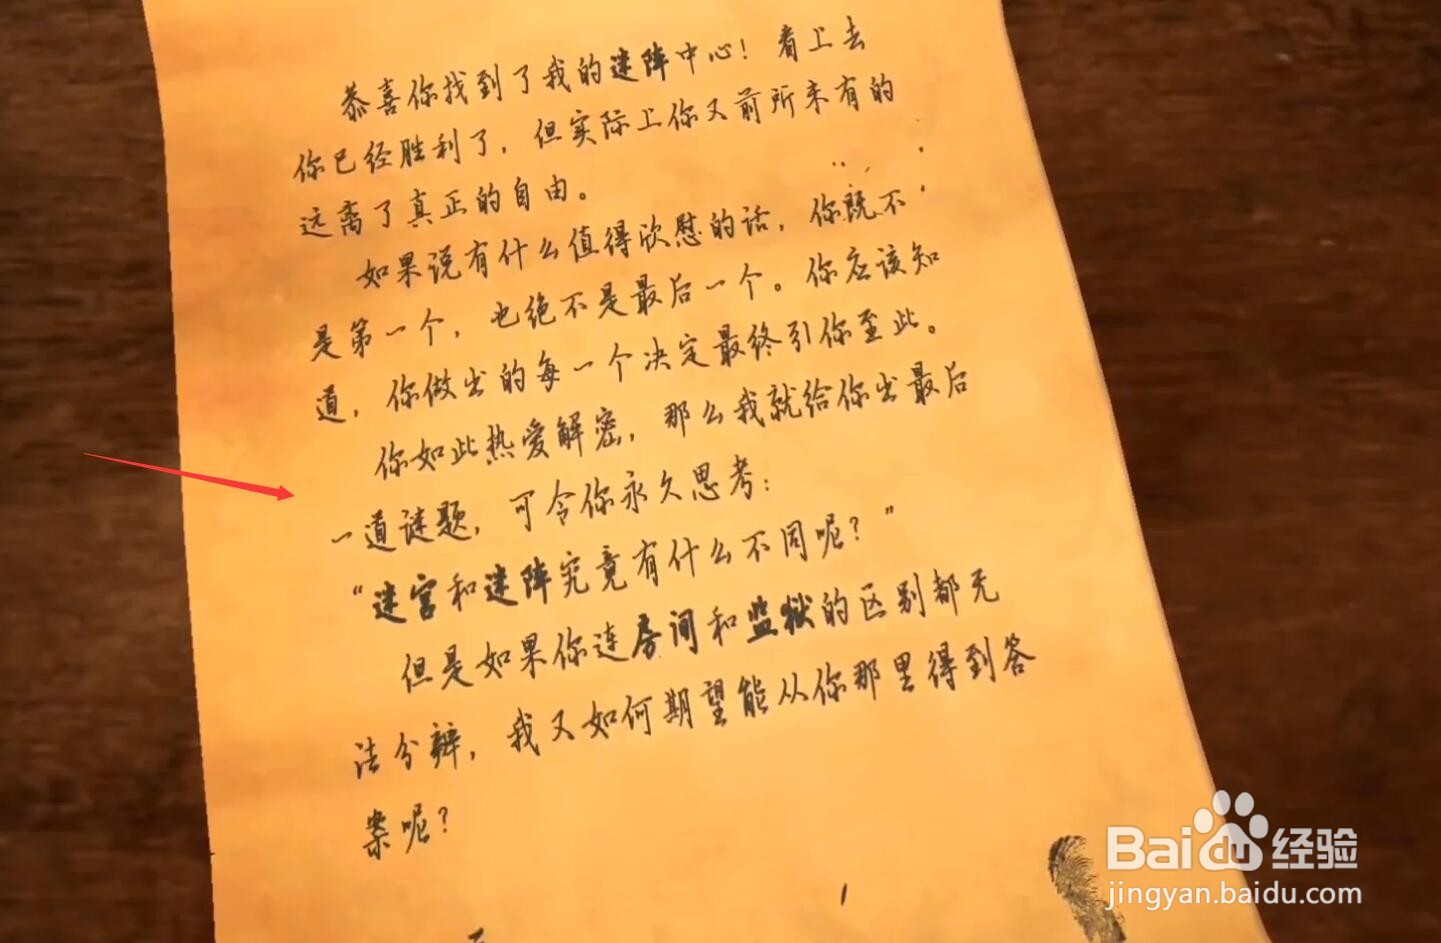 恭喜你找到了我的迷阵中心！看上去
你已经胜利了，但实际上你又前所未有的
远离了真正的自由。
如果说有什么值得欣慰的话，你既不
是第一个，也绝不是最后一个。你应该知
道，你做出的每一个决定最终引你至此。
你如此热爱解密，那么我就给你出最后
一道谜题，可令你永久思考：
“迷宫和迷阵究竟有什么不同呢？”
但是如果你连房间和监狱的区别都无
法分辨，我又如何期望能从你那里得到答
案呢？
Baidu经验
jingyan.baidu.com